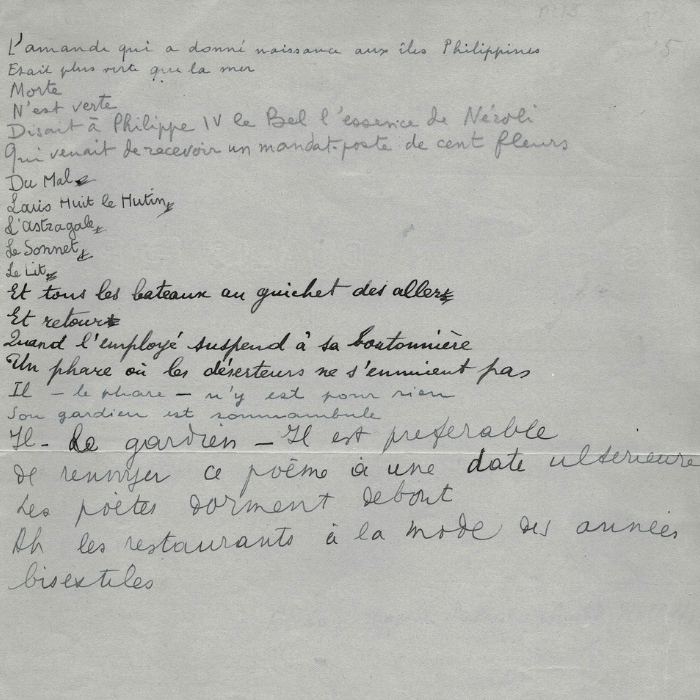 L'amande qui a donné naissance aux îles Philippines
Etait plus verte que la mer
Morte
N'est verte
Disait à Philippe IV le Bel l'essence de Néroli
Qui venait de recevoir un mandat-poste de cent fleurs
Du Mal
Louis Huit le Hutin
L'astragale
Le Sonnet
Le Lit
Et tous les bateaux au guichet des allers
Et retours
Quand l'employé suspend à sa boutonnière
Un phare où les déserteurs ne s'ennuient pas
Il – le phare – n'y est pour rien
Son gardien est somnambule
Il - Le gardien – Il est préferable
de renvoyer ce poème à une date ultérieure
Les poètes dorment debout
Ah les restaurants à la mode des années
bisextiles